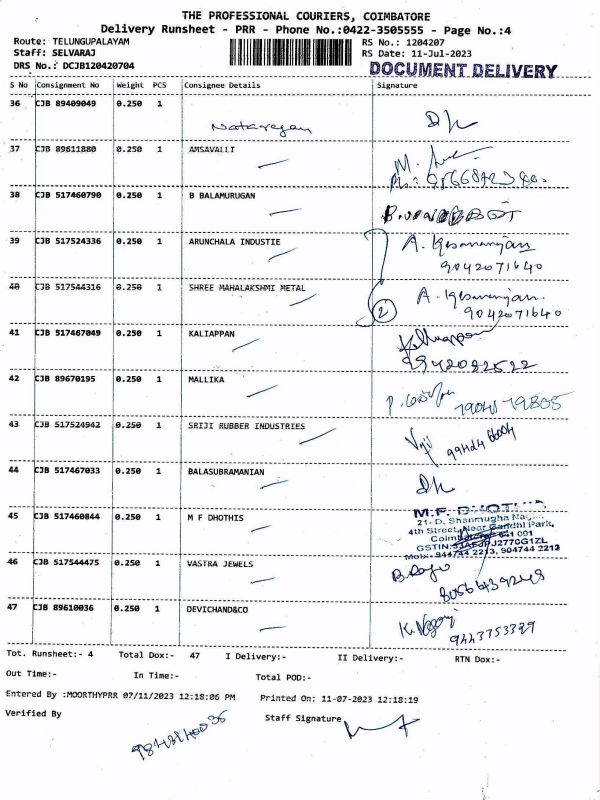 THE PROFESSIONAL COURIERS, COIMBATORE
Delivery Runsheet - PRR - Phone No.:0422-3505555 - Page No.:4
Route: TELUNGUPALAYAM RS No.: 1204207
Staff: SELVARAJ RS Date: 11-Jul-2023
DRS No.: DCJB120420704 DOCUMENT DELIVERY
S No Consignment No Weight PCS Consignee Details Signature
36 CJB 89409049 0.250 1
Natarajan
37 CJB 89611880 0.250 1 AMSAVALLI
38 CJB 517460790 0.250 1 B BALAMURUGAN
39 CJB 517524336 0.250 1 ARUNCHALA INDUSTIE
9042071640
40 CJB 517544316 0.250 1 SHREE MAHALAKSHMI METAL
2 9042071640
41 CJB 517467049 0.250 1 KALIAPPAN
9942022522
42 CJB 89670195 0.250 1 MALLIKA
43 CJB 517524942 0.250 1 SRIJI RUBBER INDUSTRIES
44 CJB 517467033 0.250 1 BALASUBRAMANIAN
45 CJB 517460844 0.250 1 M F DHOTHIS
21- D, Shanmugha
4th Street, Near Gandhi Park,
641 001
2213, 904744 2213
46 CJB 517544475 0.250 1 VASTRA JEWELS
47 CJB 89610036 0.250 1 DEVICHAND&CO
9443753329
Tot. Runsheet:- 4 Total Dox:- 47 I Delivery:- II Delivery:- RTN Dox:-
Out Time:- In Time:- Total POD:-
Entered By :MOORTHYPRR 07/11/2023 12:18:06 PM Printed On: 11-07-2023 12:18:19
Verified By Staff Signature